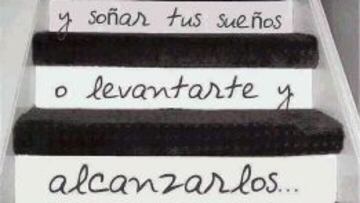 y soñar tus sueños
o levantarte y
alcanzarlos...